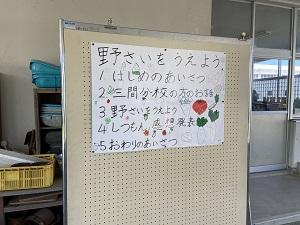 野さいをうえよう
1 はじめのあいさつ
2 三間分校の方のお話
3 野さいをうえよう
4 しつもん、感想発表
5 おわりのあいさつ